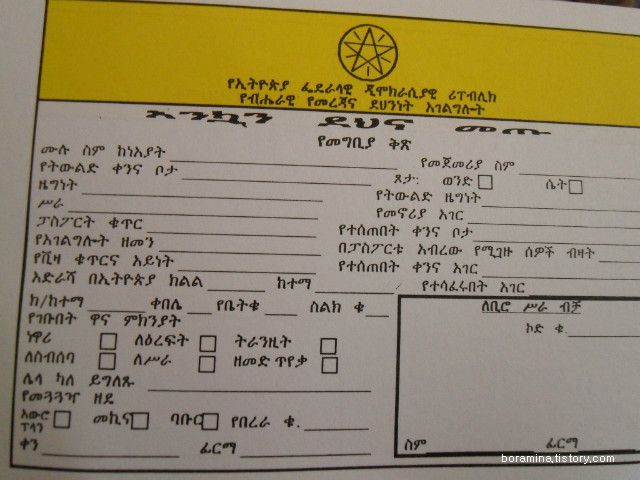 የኢትዮጵያ ፌደራላዊ ዲሞክራሲያዊ ሪፐብሊክ
የብሔራዊ የመረጃና ደህንነት አገልግሎት
እንኳን ደህና መጡ
የመግቢያ ቅጽ
ሙሉ ስም ከነአያት የመጀመሪያ ስም
የትውልድ ቀንና ቦታ ጾታ: ወንድ ሴት
ዜግነት የትውልድ ዜግነት
ሥራ የመኖሪያ አገር
ፓስፖርት ቁጥር የተሰጠበት ቀንና ቦታ
የአገልግሎት ዘመን በፓስፖርቱ አብረው የሚጓዙ ሰዎች ብዛት
የቪዛ ቁጥርና አይነት የተሰጠበት ቀንና አገር
አድራሻ በኢትዮጵያ ክልል ከተማ የተሳፈሩበት አገር
ክ/ከተማ ቀበሌ የቤትቁ ስልክ ቁ
የገቡበት ዋና ምክንያት
ነዋሪ ለዕረፍት ትራንዚት
ለስብሰባ ለሥራ ዘመድ ጥየቃ
ሌላ ካለ ይግለጹ
የመጓጓዣ ዘዴ
አውሮ ፕላን መኪና ባቡር የበረራ ቁ.
ቀን ፊርማ
ለቢሮ ሥራ ብቻ
ኮድ ቁ.
ስም ፊርማ
boramina.tistory.com